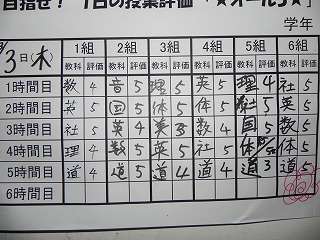 目指せ! 1日の授業評価 「★オール5★」
学年
3日(木) 1組 2組 3組 4組 5組 6組
教科 評価 教科 評価 教科 評価 教科 評価 教科 評価 教科 評価
1時間目 数 4 音 5 理 5 英 5 理 4 社 5
2時間目 英 5 国 5 体 5 体 5 社 5 英 5
3時間目 社 5 英 4 美 3 数 4 国 5 数 5
4時間目 理 4 数 5 英 5 社 5 体 体 5
5時間目 道 4 道 5 道 4 道 4 道 3 道 5
6時間目